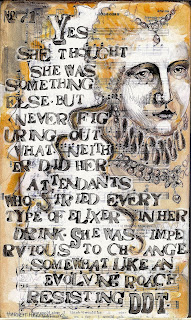 P. 71
YES
SHE THOUGHT
SHE WAS
SOMETHING
ELSE. BUT
NEVER FIG
URING OUT
WHAT. NEITH
ER DID HER
ATTENDANTS
WHO TRIED EVERY
TYPE OF ELIXER IN HER
DRINK. SHE WAS IMPE
RVIOUS TO CHANGE
SOMEWHAT LIKE AN
EVOLVING ROACH
RESISTING DDT.